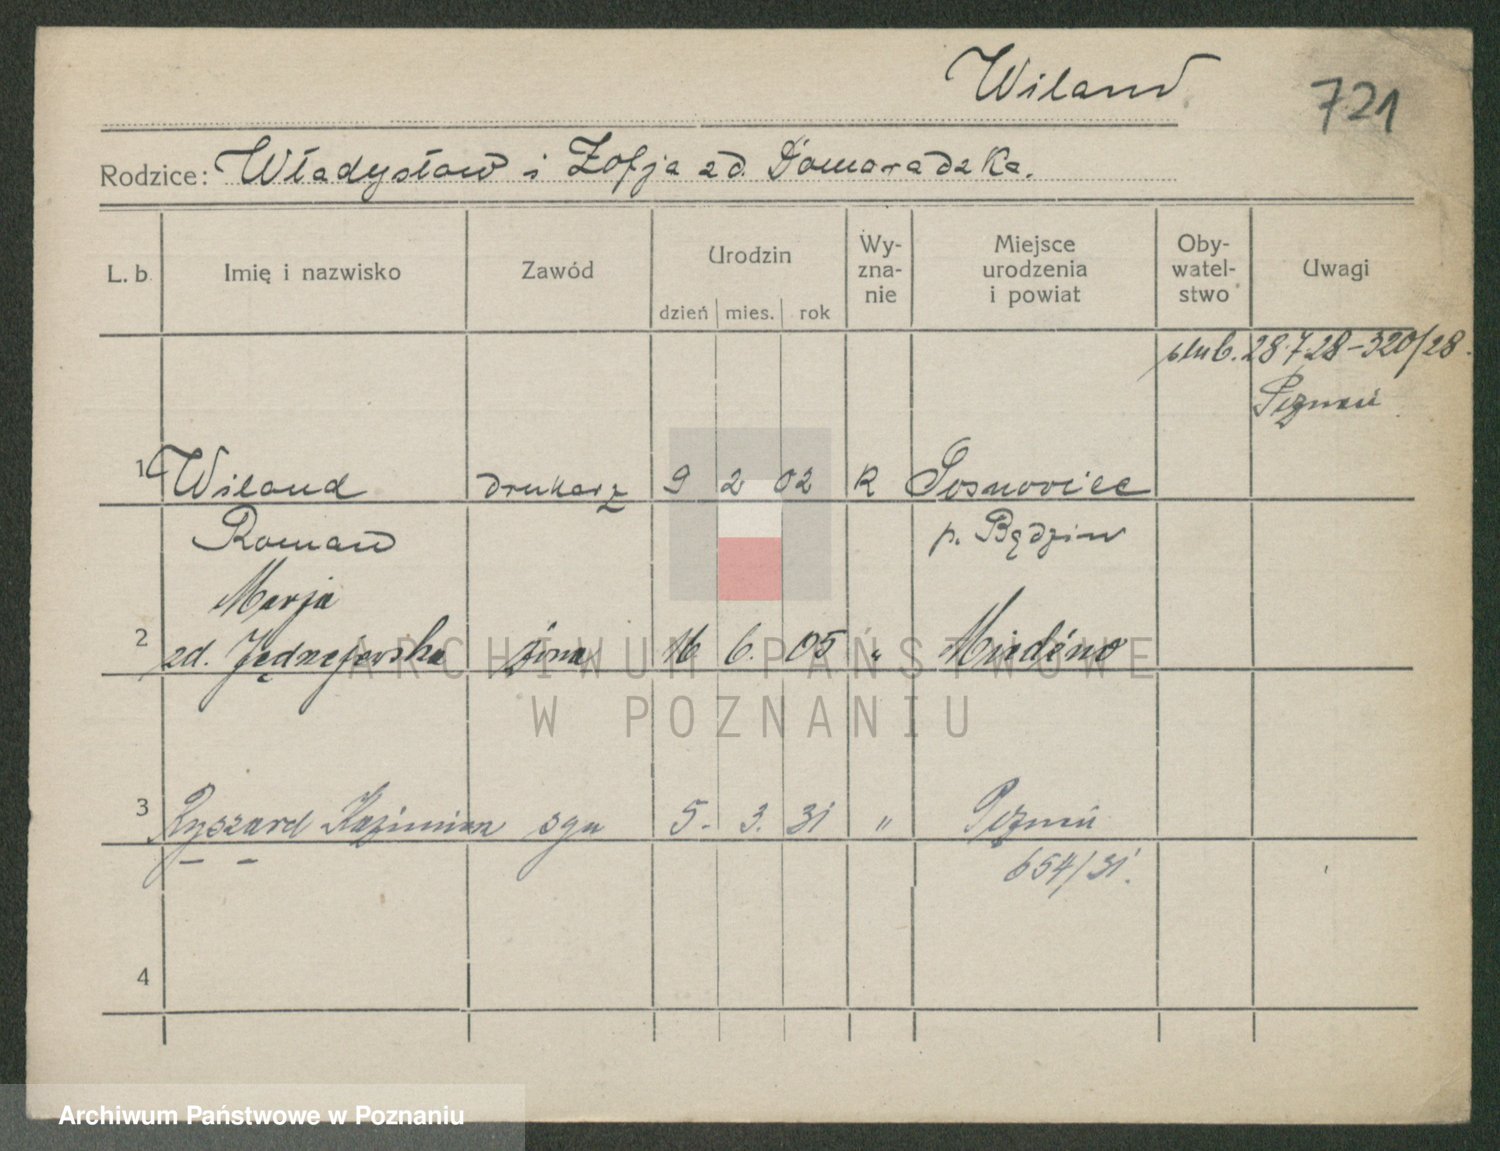 Wiland
721
Rodzice: Władysław i Zofja zd. Domaradzka.
L. b. Imię i nazwisko Zawód Urodzin dzień mies. rok Wy-zna-nie Miejsce urodzenia i powiat Oby-watel-stwo Uwagi
ślub. 28.7.28 – 320/28.
Poznań
1 Wiland drukarz 9 2 02 R Sosnowiec
Roman p. Będzin
Marja
2 zd. Jędrzejewska żona 16 6. 05 "
ARCHIWUM PAŃSTWOWE
W POZNANIU
3 Ryszard Kazimierz syn 5. 3. 31 " Poznań
654/31.
4
Archiwum Państwowe w Poznaniu